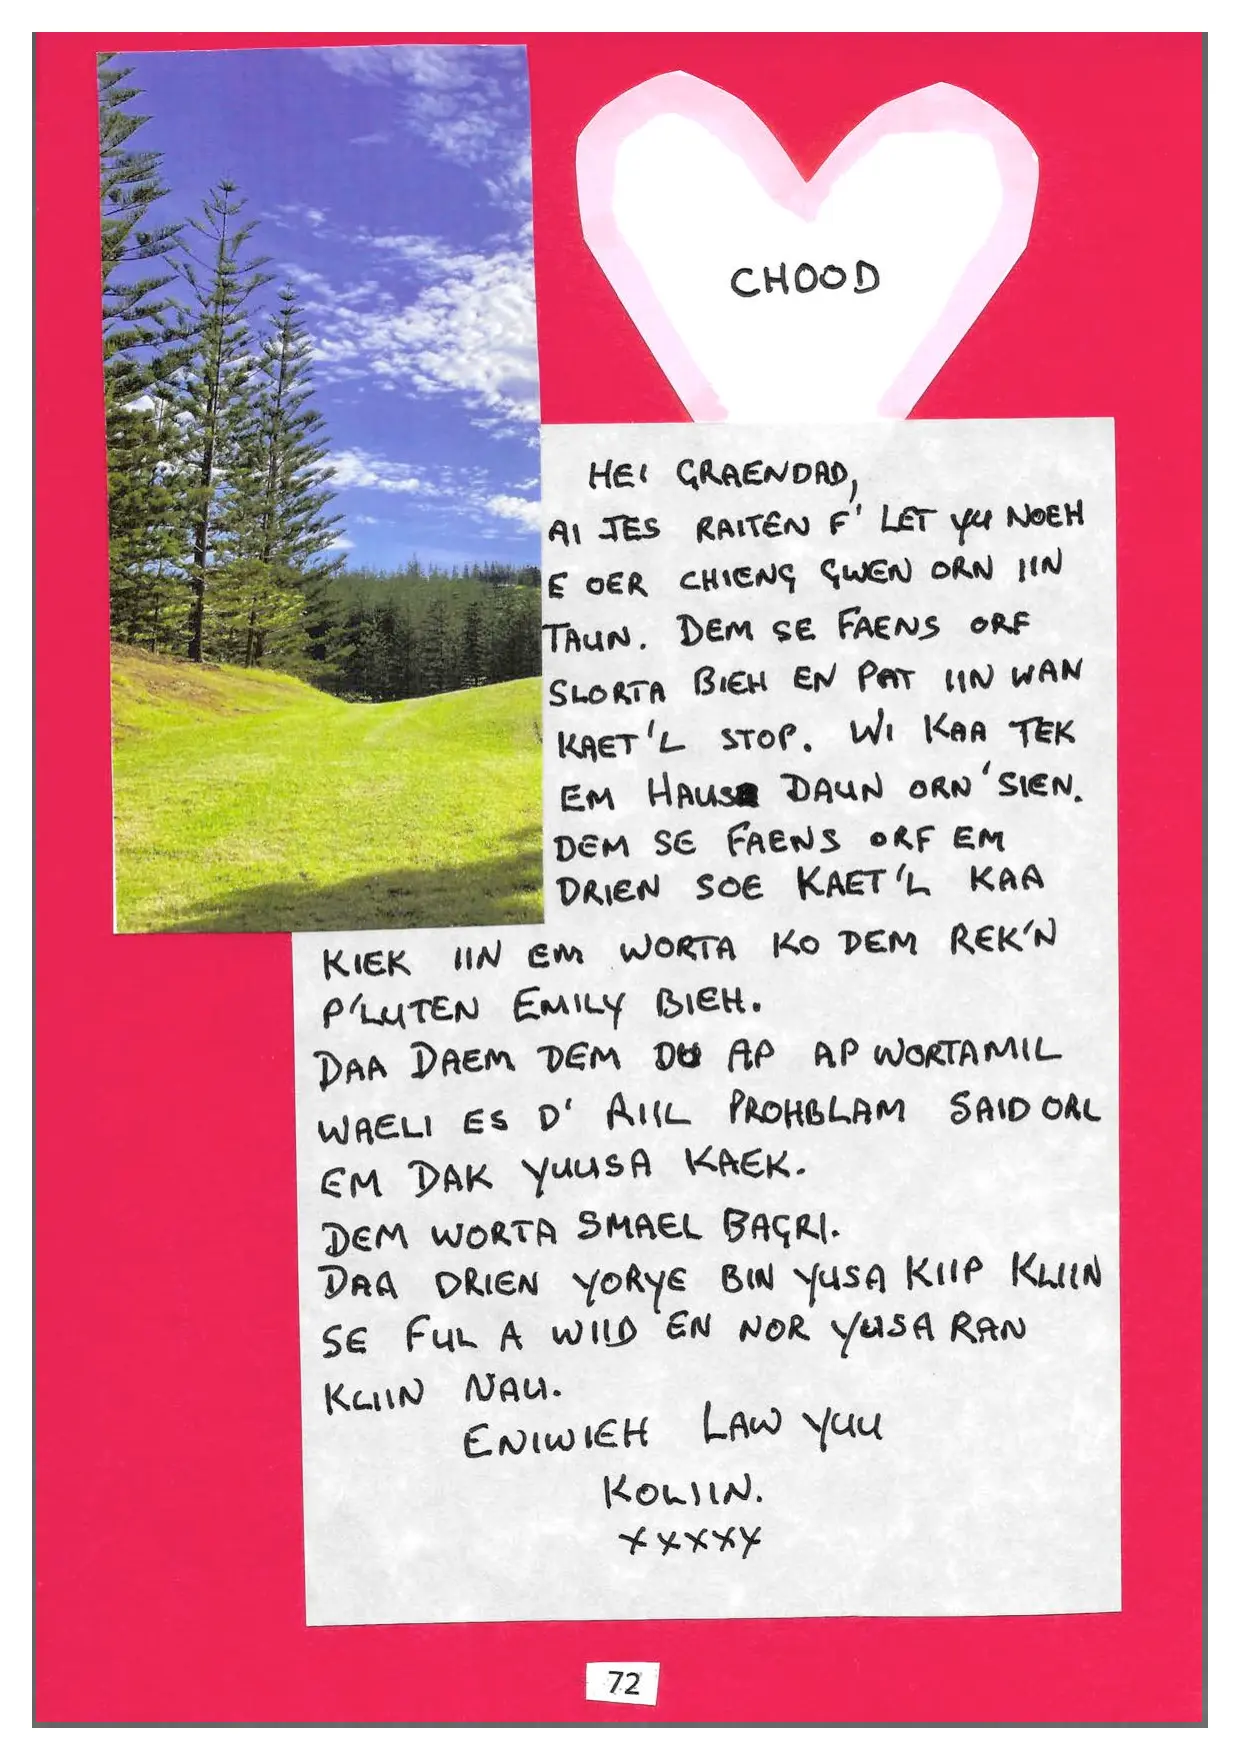 CHOOD
HEI GRAENDAD,
AI JES RAITEN F' LET YU NOEH
E OER CHIENG GWEN ORN IIN
TAUN. DEM SE FAENS ORF
SLORTA BIEH EN PAT IIN WAN
KAET'L STOP. WI KAA TEK
EM HAUS DAUN ORN'SIEN.
DEM SE FAENS ORF EM
DRIEN SOE KAET'L KAA
KIEK IIN EM WORTA KO DEM REK'N
P'LUTEN EMILY BIEH.
DAA DAEM DEM DU AP AP WORTAMIL
WAELI ES D' RIIL PROHBLAM SAID ORL
EM DAK YUUSA KAEK.
DEM WORTA SMAEL BAGRI.
DAA DRIEN YORYE BIN YUSA KIIP KLIIN
SE FUL A WIID EN NOR YUSA RAN
KLIIN NAU.
ENIWIEH LAW YUU
KOLIIN.
XXXXX
72